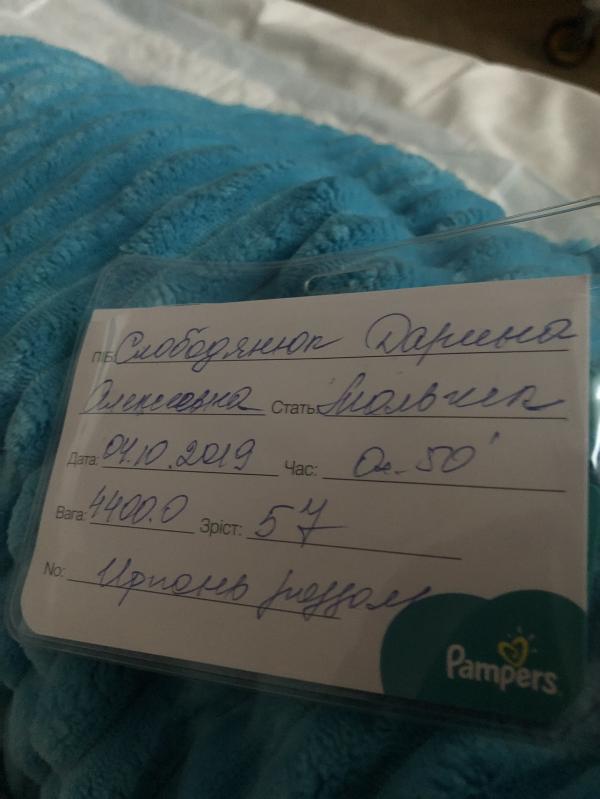 ПІБ: Слободянюк Дарина
Олексеевна Стать: Мальчик
Дата: 04.10.2019 Час: 0ч. 50'
Вага: 4400.0 Зріст: 57
No: Ирпень роддом
Pampers